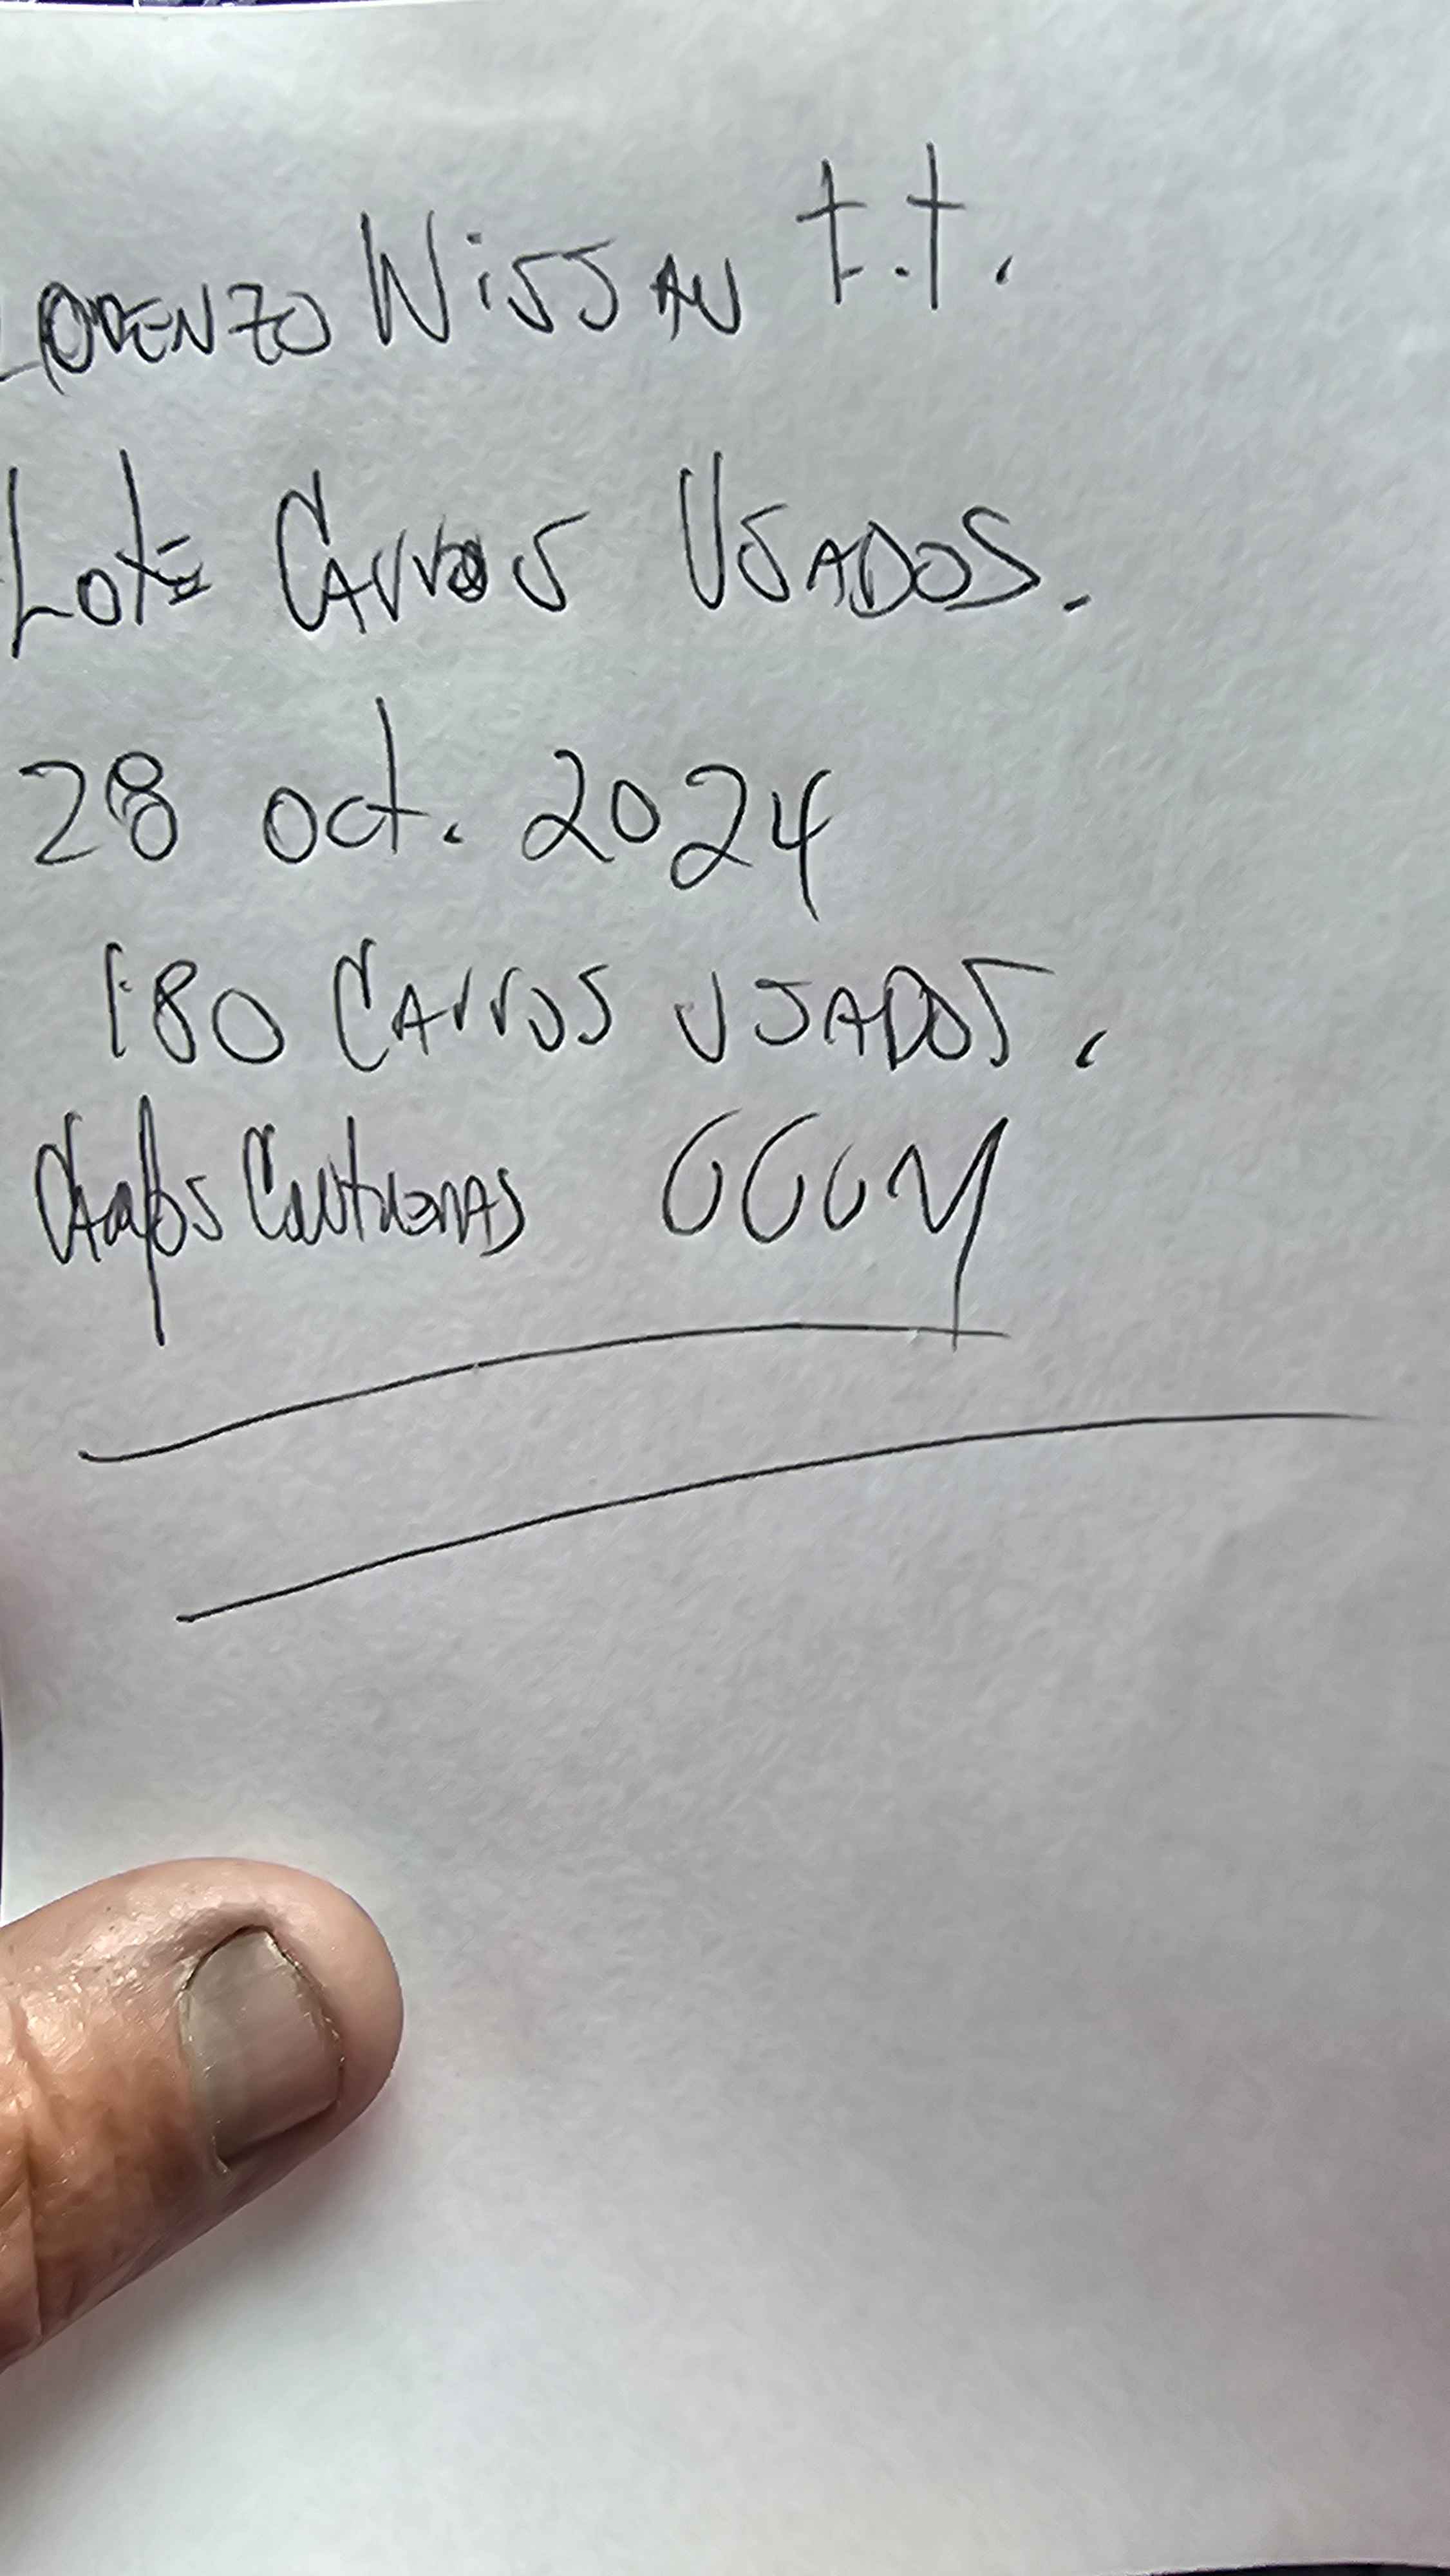 LORENZO NiSSAN t.t.
Lote CArros USADOS.
28 oct. 2024
180 CArros USADOS.
CArlos Contreras